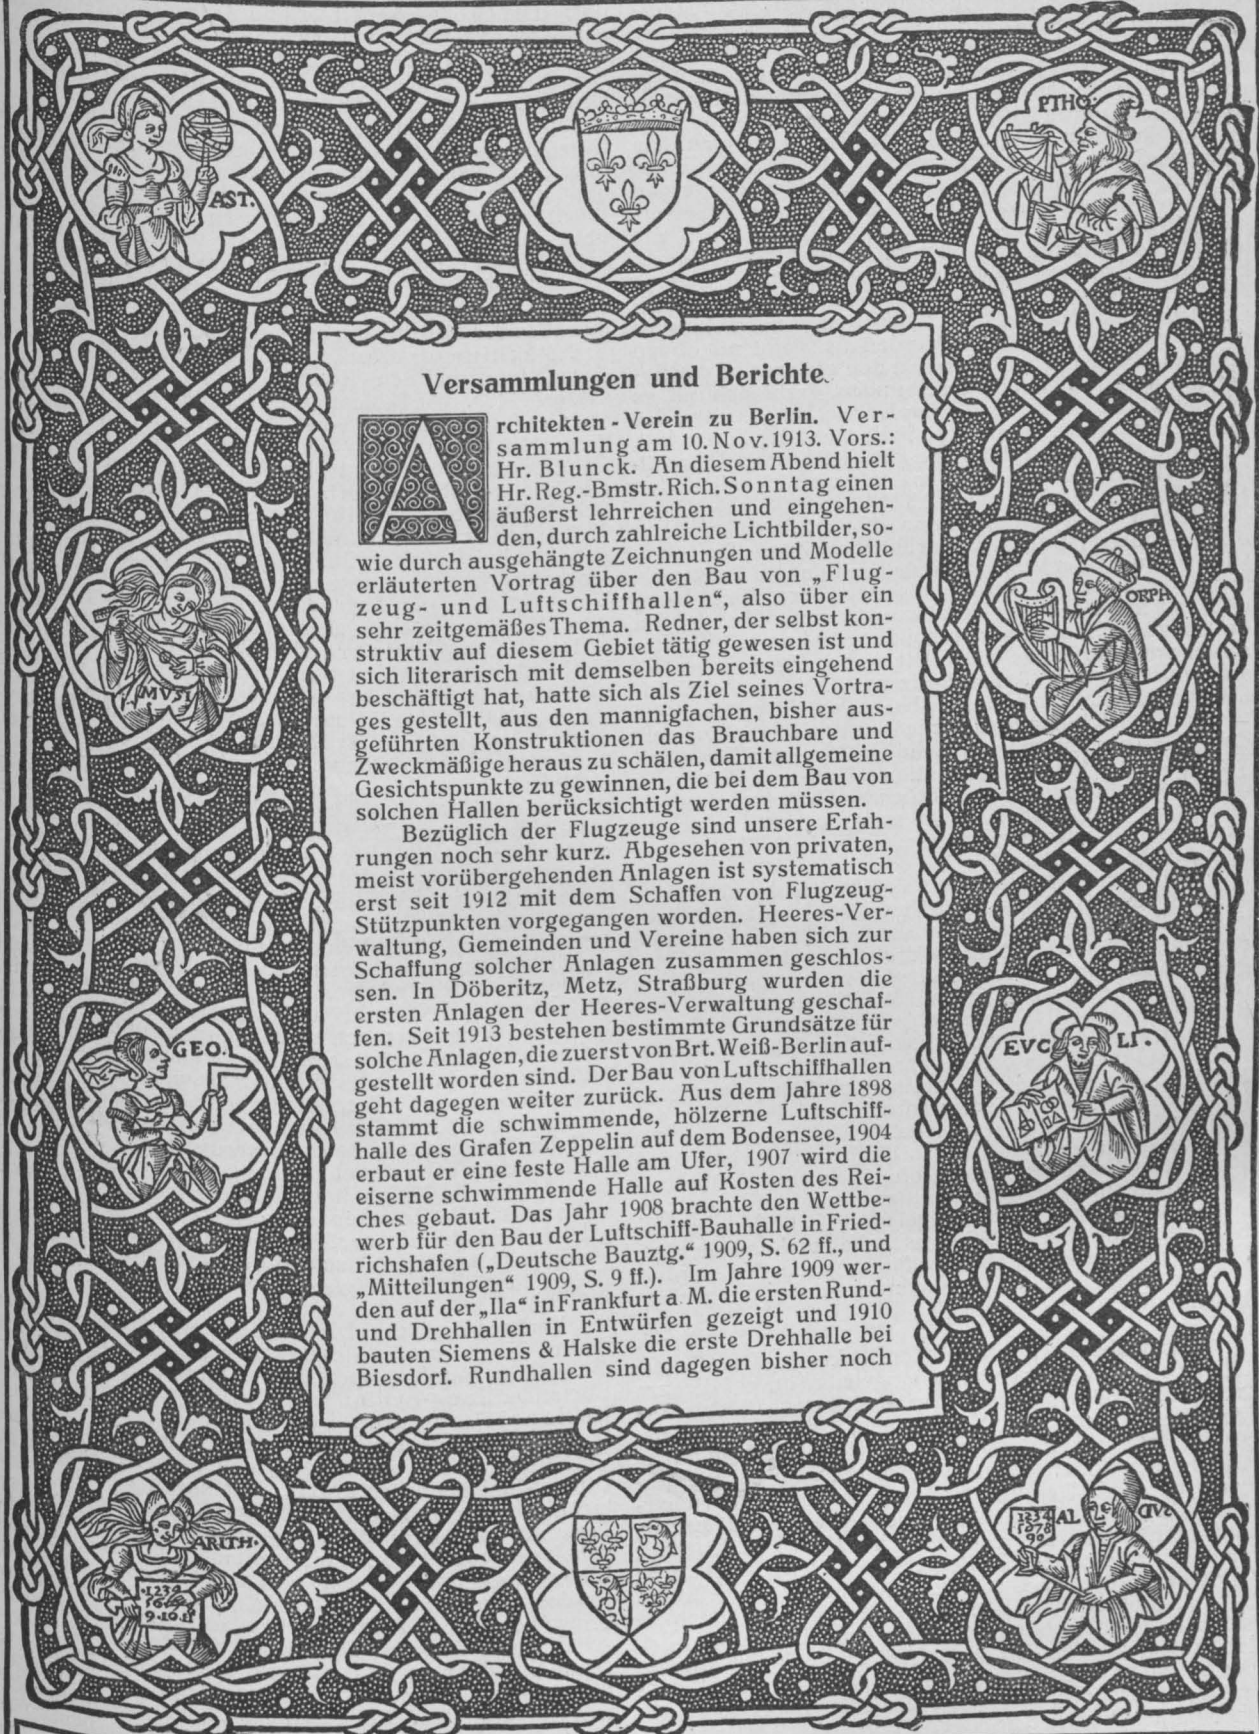 AST.
PTHO:
Versammlungen und Berichte.
Architekten-Verein zu Berlin. Ver-
sammlung am 10. Nov. 1913. Vors.:
Hr. Blunck. An diesem Abend hielt
Hr. Reg.-Bmstr. Rich. Sonntag einen
äußerst lehrreichen und eingehen-
den, durch zahlreiche Lichtbilder, so-
wie durch ausgehängte Zeichnungen und Modelle
erläuterten Vortrag über den Bau von „Flug-
zeug- und Luftschiffhallen“, also über ein
sehr zeitgemäßes Thema. Redner, der selbst kon-
struktiv auf diesem Gebiet tätig gewesen ist und
sich literarisch mit demselben bereits eingehend
beschäftigt hat, hatte sich als Ziel seines Vortra-
ges gestellt, aus den mannigfachen, bisher aus-
geführten Konstruktionen das Brauchbare und
Zweckmäßige heraus zu schälen, damit allgemeine
Gesichtspunkte zu gewinnen, die bei dem Bau von
solchen Hallen berücksichtigt werden müssen.
Bezüglich der Flugzeuge sind unsere Erfah-
rungen noch sehr kurz. Abgesehen von privaten,
meist vorübergehenden Anlagen ist systematisch
erst seit 1912 mit dem Schaffen von Flugzeug-
Stützpunkten vorgegangen worden. Heeres-Ver-
waltung, Gemeinden und Vereine haben sich zur
Schaffung solcher Anlagen zusammen geschlos-
sen. In Döberitz, Metz, Straßburg wurden die
ersten Anlagen der Heeres-Verwaltung geschaf-
fen. Seit 1913 bestehen bestimmte Grundsätze für
solche Anlagen, die zuerst von Brt. Weiß-Berlin auf-
gestellt worden sind. Der Bau von Luftschiffhallen
geht dagegen weiter zurück. Aus dem Jahre 1898
stammt die schwimmende, hölzerne Luftschiff-
halle des Grafen Zeppelin auf dem Bodensee, 1904
erbaut er eine feste Halle am Ufer, 1907 wird die
eiserne schwimmende Halle auf Kosten des Rei-
ches gebaut. Das Jahr 1908 brachte den Wettbe-
werb für den Bau der Luftschiff-Bauhalle in Fried-
richshafen („Deutsche Bauztg.“ 1909, S. 62 ff., und
„Mitteilungen“ 1909, S. 9 ff.). Im Jahre 1909 wer-
den auf der „Ila“ in Frankfurt a. M. die ersten Rund-
und Drehhallen in Entwürfen gezeigt und 1910
bauten Siemens & Halske die erste Drehhalle bei
Biesdorf. Rundhallen sind dagegen bisher noch
MVSI
ORPH
GEO.
EVC LI.
ARITH.
1234
9.10.11
AL
1234
5678
90